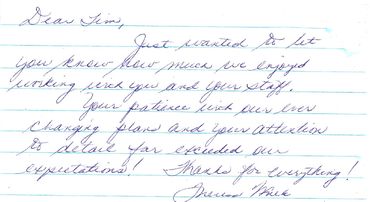 Dear Jim,
Just wanted to let
you know how much we enjoyed
working with you and your staff.
Your patience with our ever
changing plans and your attention
to detail far exceeded our
expectations! Thanks for everything!